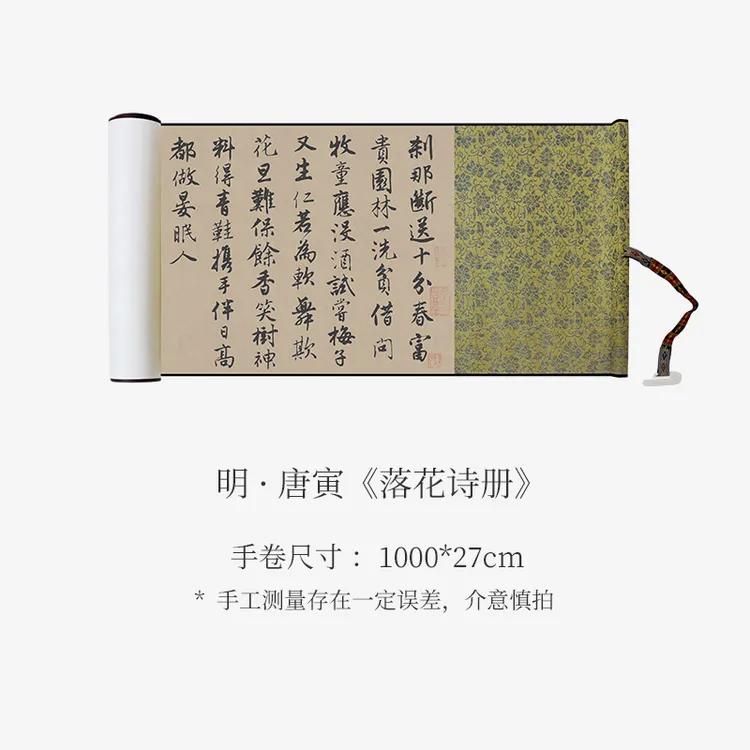 刹那斷送十分春富
貴園林一洗貧借問
牧童應沒酒試嘗梅子
又生仁若為軟舞欺
花旦難保餘香笑樹神
料得青鞋攜手伴日高
都做晏眠人
明·唐寅《落花诗册》
手卷尺寸：1000*27cm
* 手工测量存在一定误差，介意慎拍